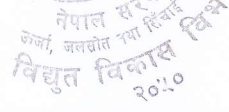 नेपाल सर
ऊर्जा, जलस्रोत तथा सिंचाई
विद्युत विकास विभ
२०५०